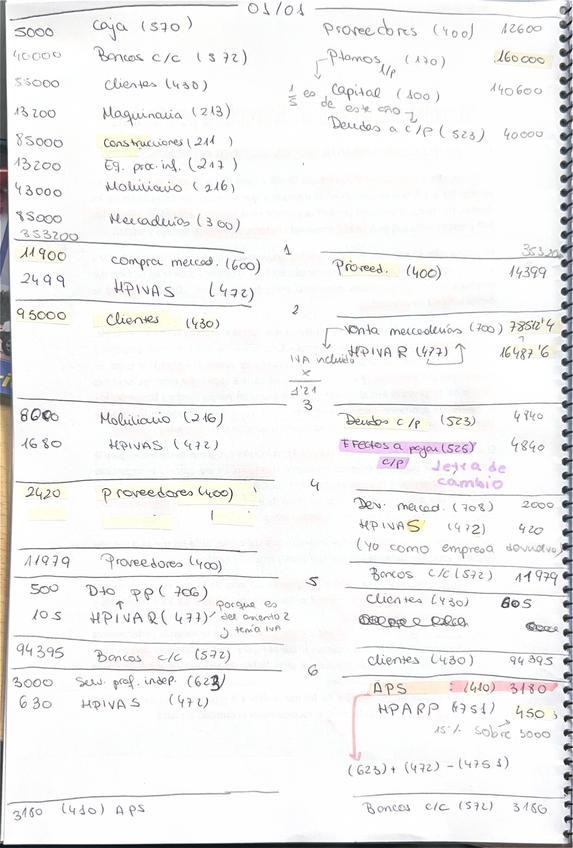 01/01
5000 Caja (570) Proveedores (400) 12600
40000 Bancos c/c (572) Ptamos l/p (170) 160000
55000 Clientes (430) 1/5 es de este año Capital (100) 140600
13200 Maquinaria (213) Deudas a c/p (523) 40000
85000 Construcciones (211)
13200 Eq. proc. inf. (217)
43000 Mobiliario (216)
85000 Mercaderías (300)
353200 353200
1
11900 compra mercad. (600) Proveed. (400) 14399
2499 HPIVAS (472)
2
95000 Clientes (430) Venta mercaderías (700) 78512'4
IVA incluido x/1'21 HPIVAR (477) 16487'6
3
8000 Mobiliario (216) Deudas c/p (523) 4840
1680 HPIVAS (472) Efectos a pagar (525) c/p 4840
letra de cambio
4
2420 Proveedores (400) Dev. mercad. (708) 2000
HPIVAS (472) 420
(yo como empresa devuelvo)
11979 Proveedores (400) Bancos c/c (572) 11979
5
500 Dto pp (706) Clientes (430) 605
105 HPIVAR (477) porque es del asiento 2 y tenía IVA
94395 Bancos c/c (572) Clientes (430) 94395
6
3000 Serv. prof. indep. (623) APS (410) 3180
630 HPIVAS (472) HPARP (4751) 450
15% sobre 3000
(623) + (472) - (4751)
3180 (410) APS Bancos c/c (572) 3180